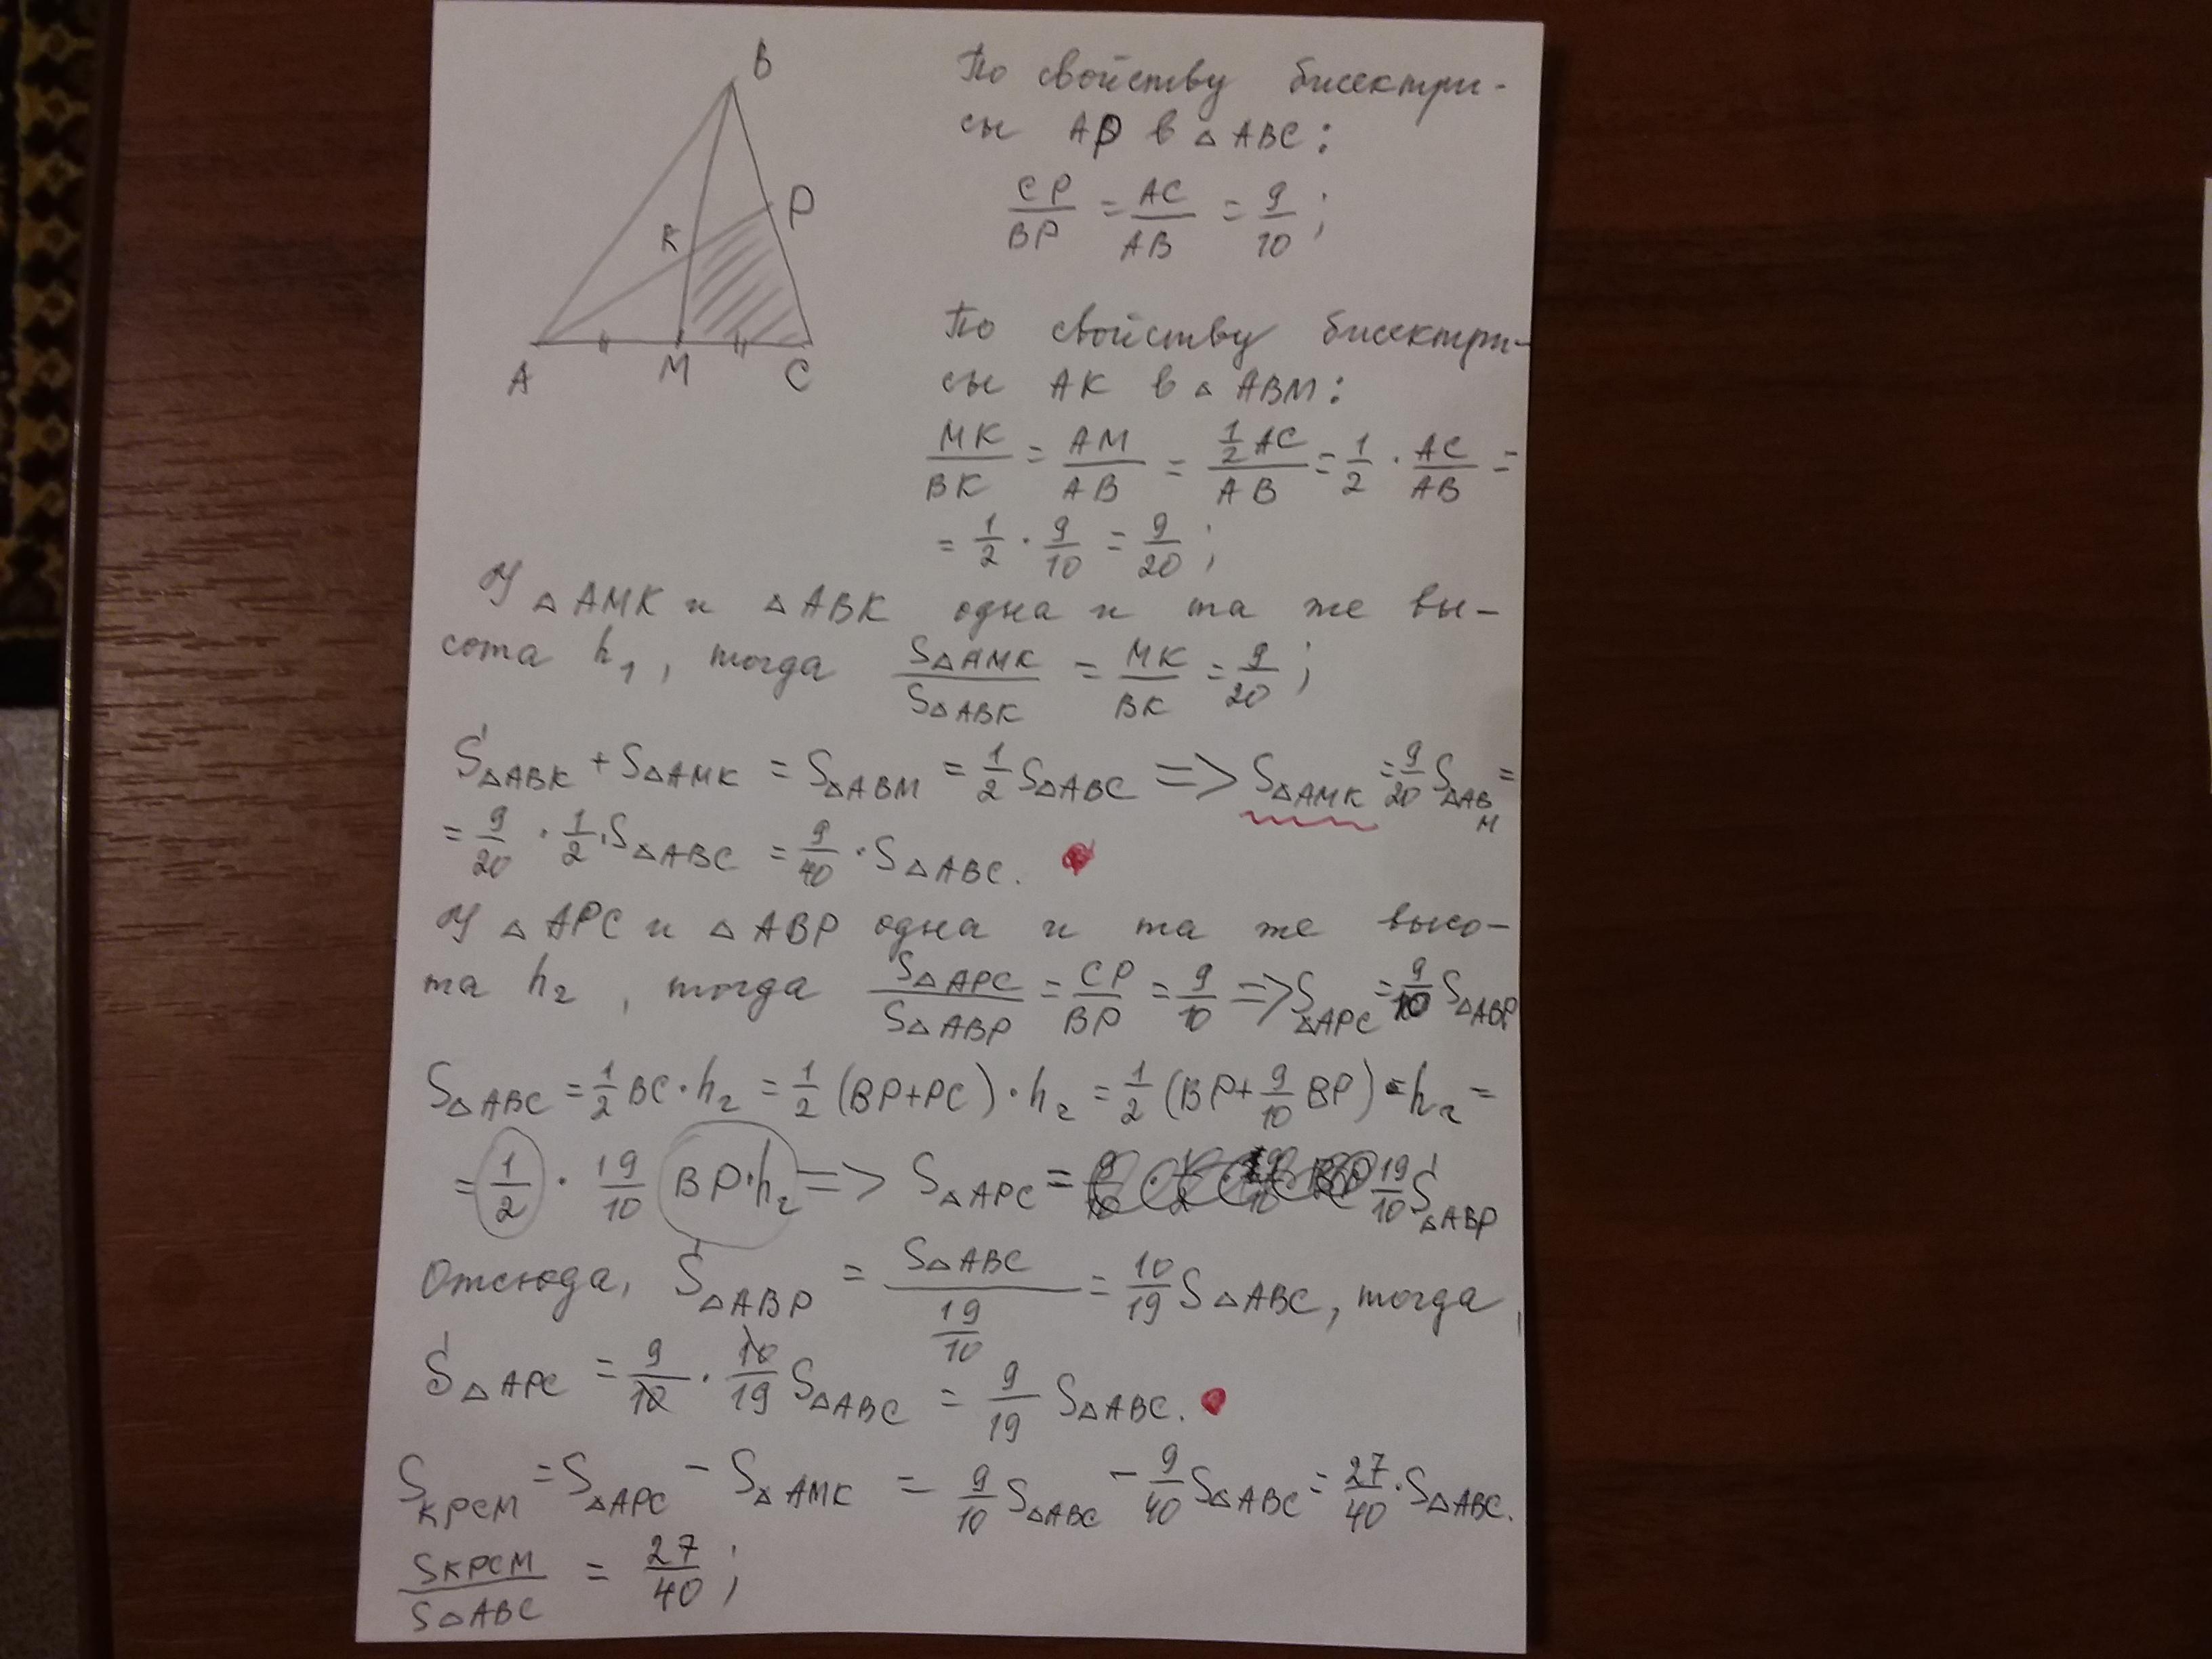 B
P
K
A
M
C
По свойству бисектри-
сы AP в △ABC:
CP/BP = AC/AB = 9/10;
По свойству бисектри-
сы AK в △ABM:
MK/BK = AM/AB = 1/2 AC/AB = 1/2 · AC/AB =
= 1/2 · 9/10 = 9/20;
У △AMK и △ABK одна и та же вы-
сота h₁, тогда S△AMK/S△ABK = MK/BK = 9/20;
S△ABK + S△AMK = S△ABM = 1/2 S△ABC => S△AMK = 9/20 S△ABM =
= 9/20 · 1/2 · S△ABC = 9/40 · S△ABC.
У △APC и △ABP одна и та же высо-
та h₂, тогда S△APC/S△ABP = CP/BP = 9/10 => S△APC = 9/10 S△ABP
S△ABC = 1/2 BC · h₂ = 1/2 (BP+PC) · h₂ = 1/2 (BP + 9/10 BP) · h₂ =
= 1/2 · 19/10 BP·h₂ => S△APC = 19/10 S△ABP
Отсюда, S△ABP = S△ABC/(19/10) = 10/19 S△ABC, тогда,
S△APC = 9/10 · 10/19 S△ABC = 9/19 S△ABC.
SKPCM = S△APC - S△AMK = 9/10 S△ABC - 9/40 S△ABC = 27/40 · S△ABC.
SKPCM/S△ABC = 27/40;